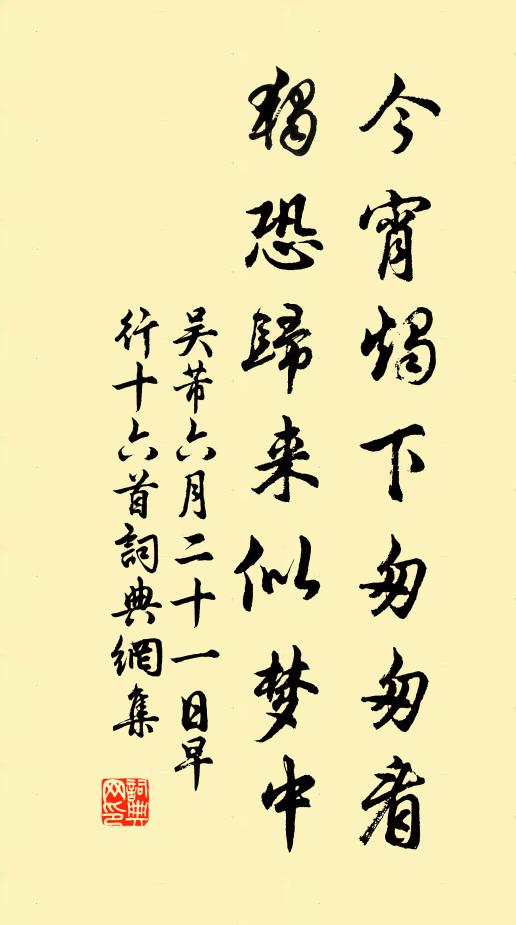 今宵燭下匆匆看
獨恐歸来似梦中
吴芾六月二十一日早
行十六首詞典網集
詞典网印